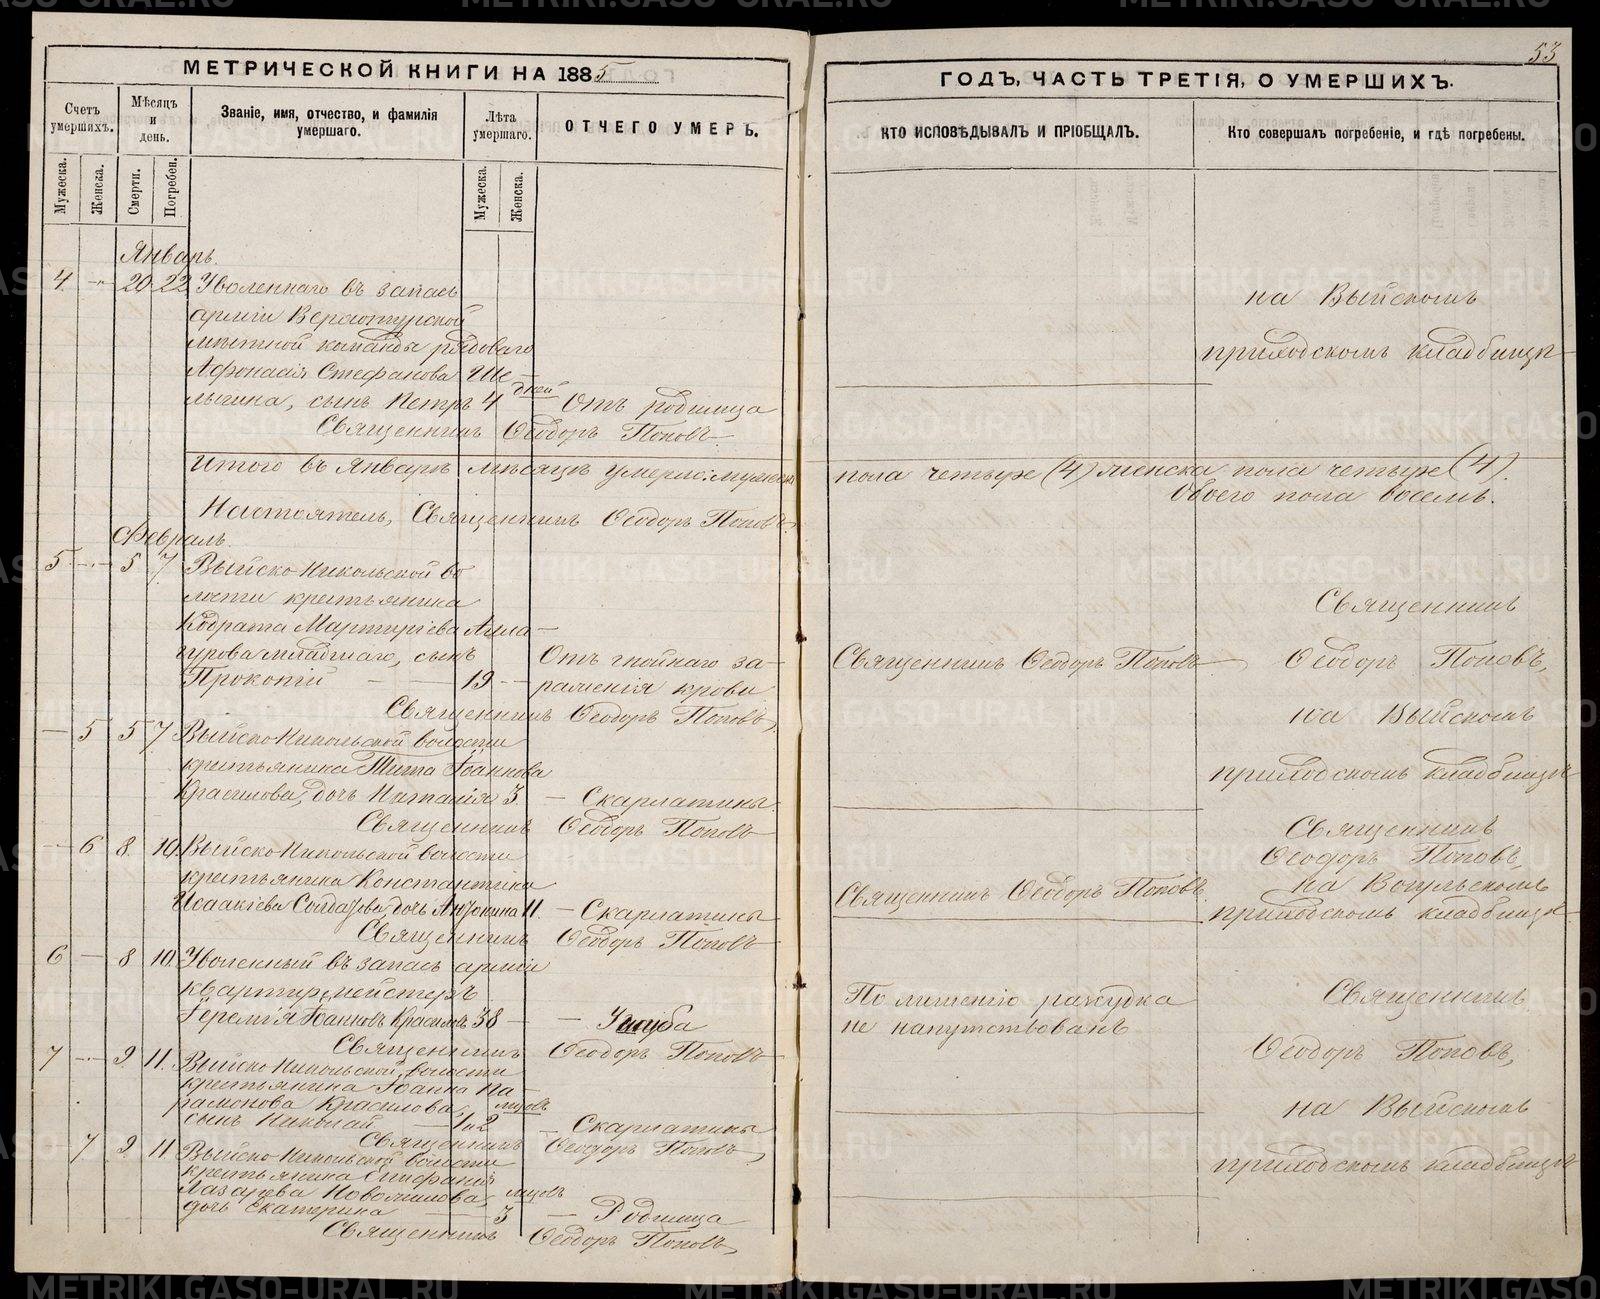 МЕТРИЧЕСКОЙ КНИГИ НА 1885
Счетъ умершихъ.
Мѣсяцъ и день.
Званіе, имя, отчество, и фамилія умершаго.
Лѣта умершаго.
ОТЧЕГО УМЕРЪ.
Мужеска.
Женска.
Смерти.
Погребен.
Мужеска.
Женска.
Январь.
4 - 20 22 Уволеннаго въ запасъ
арміи Верхотурской
мѣстной команды рядоваго
Афонасія Стефанова Ше-
лыгина, сынъ Петръ 4 дней Отъ родимца
Священникъ Ѳеодоръ Поповъ
Итого въ Январѣ мѣсяцѣ умерло: мужеска
Настоятель, Священникъ Ѳеодоръ Поповъ
Февраль.
5 - 5 7 Выйско-Никольской во
лости крестьянина
Кодрата Мартиріева
младшаго, сынъ Отъ гнойнаго за-
Прокопій 19 раженія крови
Священникъ Ѳеодоръ Поповъ,
- 5 5 7 Выйско-Никольской волости
крестьянина Тита Іоаннова
Красилова, дочь Наталія 3 - Скарлатины
Священникъ Ѳеодоръ Поповъ
- 6 8. 10. Выйско-Никольской волости
крестьянина Константина
Исаакіева дочь 11. - Скарлатины
Священникъ Ѳеодоръ Поповъ
6 - 8 10. Уволенный въ запасъ арміи
квартирмейстеръ
Іеремія Іоанновъ Красиловъ 38 -
Священникъ Ѳеодоръ Поповъ
7 - 9 11. Выйско-Никольской волости
крестьянина Іоанна Па-
рамонова Красилова,
сынъ Николай - Скарлатины
Священникъ Ѳеодоръ Поповъ,
7 9. 11. Выйско-Никольской волости
крестьянина
Лазарева
дочь Екатерина 3 - Родимца
Священникъ Ѳеодоръ Поповъ,
53
ГОДЪ, ЧАСТЬ ТРЕТІЯ, О УМЕРШИХЪ.
КТО ИСПОВѢДЫВАЛЪ И ПРІОБЩАЛЪ.
Кто совершалъ погребеніе, и гдѣ погребены.
на Выйскомъ
приходскомъ кладбищѣ
пола четыре (4) женска пола четыре (4).
Обоего пола восемь.
Священникъ
Священникъ Ѳеодоръ Поповъ Ѳеодоръ Поповъ,
на Выйскомъ
приходскомъ кладбищѣ
Священникъ
Ѳеодоръ Поповъ,
Священникъ Ѳеодоръ Поповъ на Вогульскомъ
приходскомъ кладбищѣ
По лишенію разсудка Священникъ
не напутствованъ
Ѳеодоръ Поповъ,
на Выйскомъ
приходскомъ кладбищѣ
METRIKI.GASO-URAL.RU